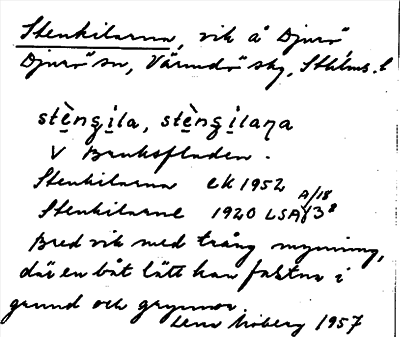 Stenkilarna, vik å Djurö
Djurö sn, Värmdö skg, Sthlms. l
stèngila, stèngilaņa
V Bruksfladen.
Stenkilarna ek 1952
Stenkilarne 1920 LSA
Bred vik med trång mynning,
där en båt lätt kan fastna i
grund och grynnor
Lena Moberg 1957